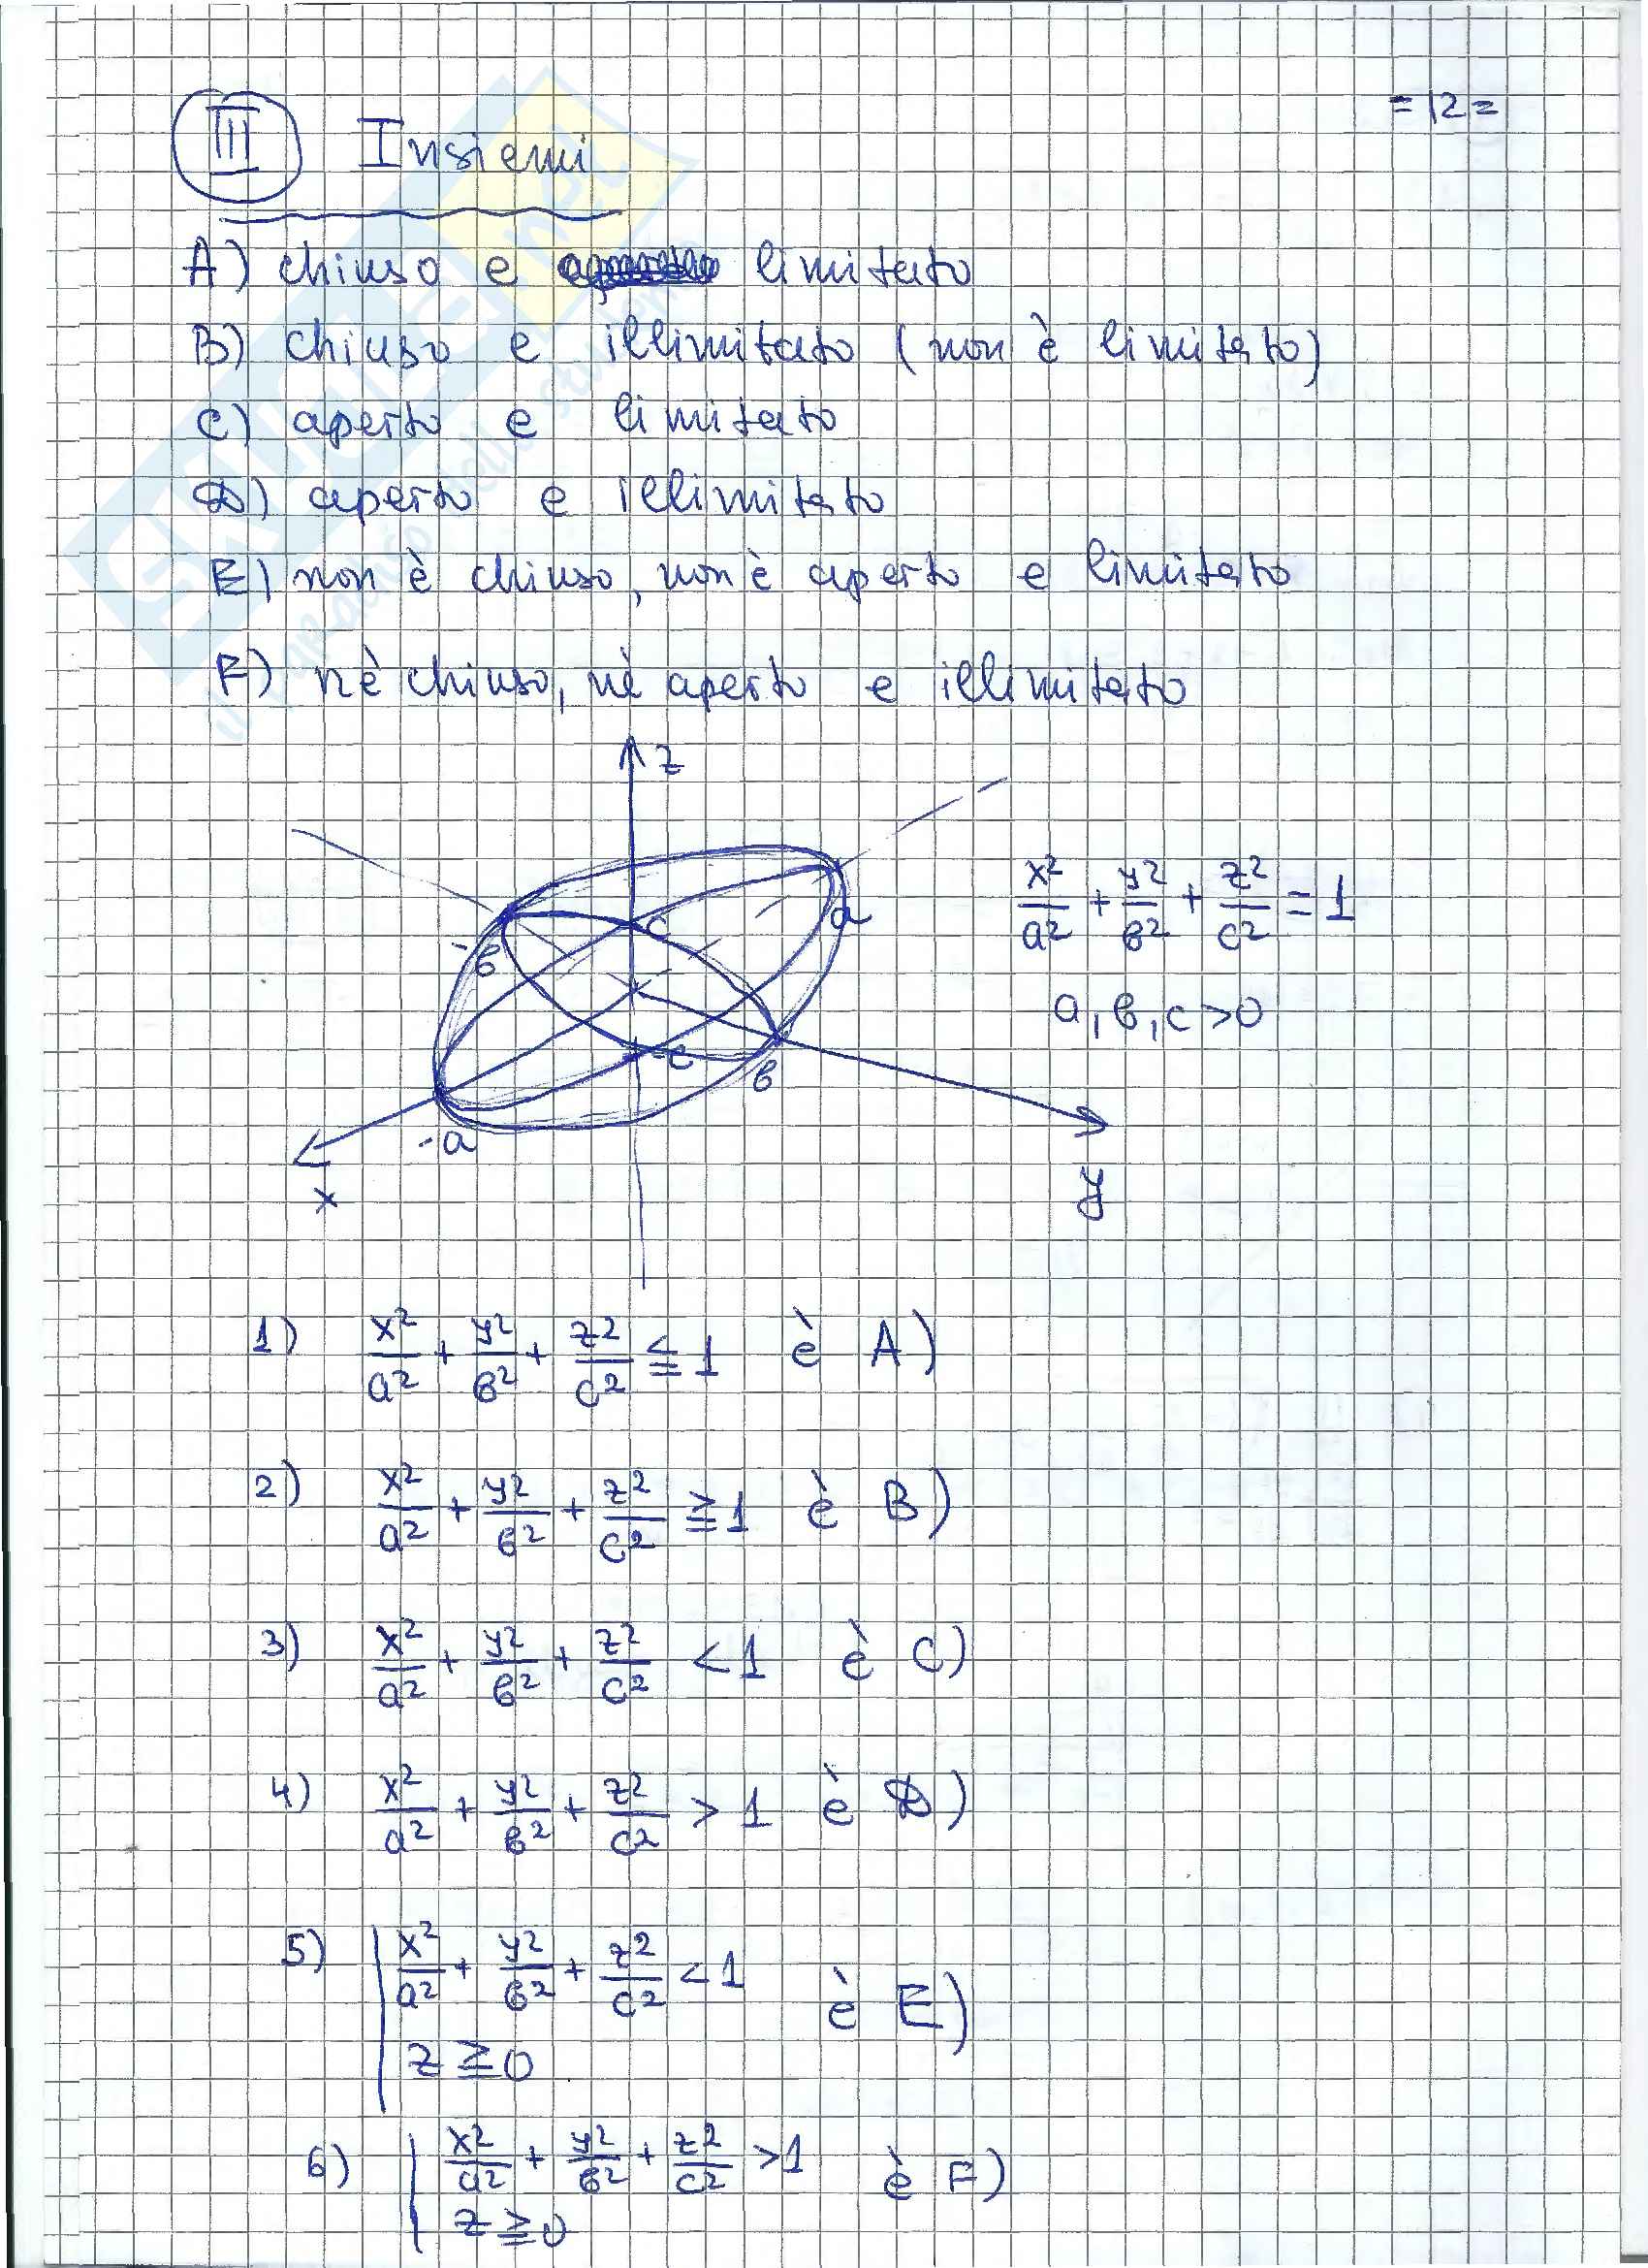 = 12 =
III Insiemi
A) chiuso e limitato
B) chiuso e illimitato (non è limitato)
C) aperto e limitato
D) aperto e illimitato
E) non è chiuso, non è aperto e limitato
F) nè chiuso, nè aperto e illimitato
z
x²/a² + y²/b² + z²/c² = 1
a, b, c > 0
c
a
-b
-c
b
-a
x
y
1) x²/a² + y²/b² + z²/c² ≦ 1 è A)
2) x²/a² + y²/b² + z²/c² ≧ 1 è B)
3) x²/a² + y²/b² + z²/c² < 1 è C)
4) x²/a² + y²/b² + z²/c² > 1 è D)
5) x²/a² + y²/b² + z²/c² < 1
z ≧ 0 è E)
6) x²/a² + y²/b² + z²/c² > 1 è F)
z ≧ 0